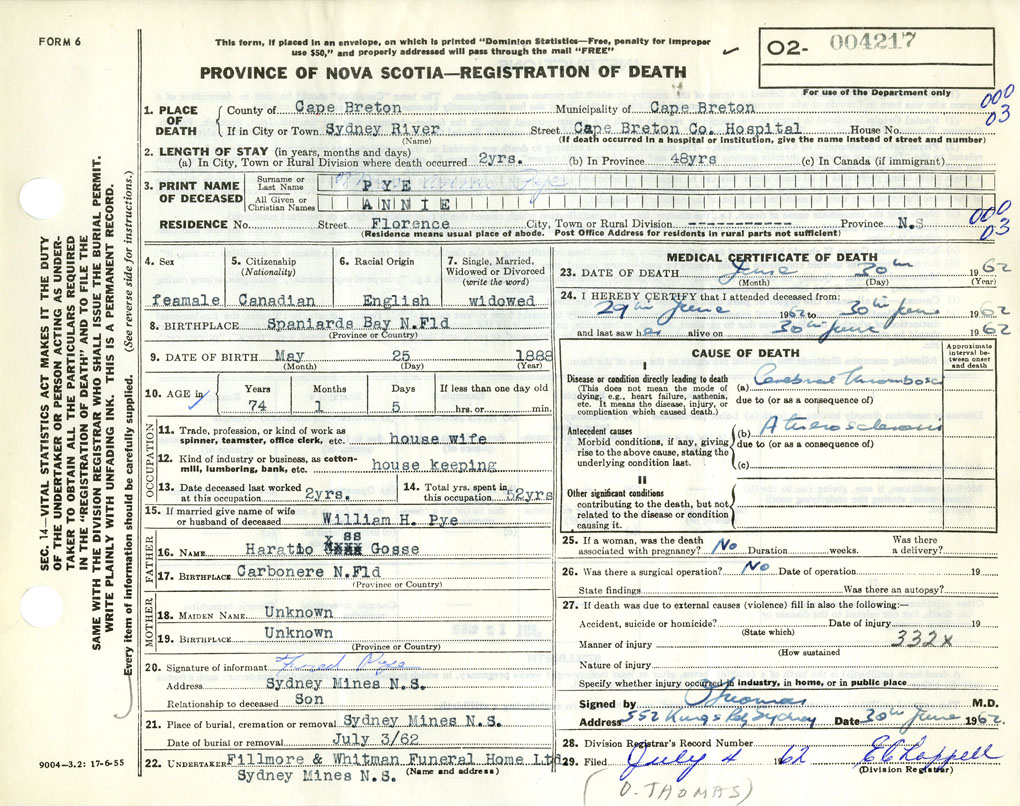 FORM 6
This form, if placed in an envelope, on which is printed "Dominion Statistics—Free, penalty for improper
use $50," and properly addressed will pass through the mail "FREE"
PROVINCE OF NOVA SCOTIA—REGISTRATION OF DEATH
O2- 004217
For use of the Department only
000
03
1. PLACE OF DEATH
County of Cape Breton Municipality of Cape Breton
If in City or Town Sydney River Street Cape Breton Co. Hospital House No.
(Name) (If death occurred in a hospital or institution, give the name instead of street and number)
2. LENGTH OF STAY (in years, months and days)
(a) In City, Town or Rural Division where death occurred 2yrs. (b) In Province 48yrs (c) In Canada (if immigrant)
3. PRINT NAME OF DECEASED
Surname or Last Name PYE
All Given or Christian Names ANNIE
000
03
RESIDENCE No. Street Florence City, Town or Rural Division ----------- Province N.S
(Residence means usual place of abode. Post Office Address for residents in rural parts not sufficient)
4. Sex
feamale
5. Citizenship
(Nationality)
Canadian
6. Racial Origin
English
7. Single, Married,
Widowed or Divorced
(write the word)
widowed
8. BIRTHPLACE Spaniards Bay N.Fld
(Province or Country)
9. DATE OF BIRTH May 25 1888
(Month) (Day) (Year)
10. AGE in
Years Months Days If less than one day old
74 1 5 hrs. or min.
OCCUPATION
11. Trade, profession, or kind of work as
spinner, teamster, office clerk, etc. house wife
12. Kind of industry or business, as cotton-
mill, lumbering, bank, etc. house keeping
13. Date deceased last worked
at this occupation 2yrs.
14. Total yrs. spent in
this occupation 52yrs
15. If married give name of wife
or husband of deceased William H. Pye
FATHER
16. NAME Haratio Gosse
17. BIRTHPLACE Carbonere N.Fld
(Province or Country)
MOTHER
18. MAIDEN NAME Unknown
19. BIRTHPLACE Unknown
(Province or Country)
20. Signature of informant
Address Sydney Mines N.S.
Relationship to deceased Son
21. Place of burial, cremation or removal Sydney Mines N.S.
Date of burial or removal July 3/62
22. UNDERTAKER Fillmore & Whitman Funeral Home Ltd
Sydney Mines N.S. (Name and address)
MEDICAL CERTIFICATE OF DEATH
23. DATE OF DEATH June 30th 1962
(Month) (Day) (Year)
24. I HEREBY CERTIFY that I attended deceased from:
29th June 1962 to 30th June 1962
and last saw her alive on 30th June 1962
CAUSE OF DEATH
Approximate
interval be-
tween onset
and death
I
Disease or condition directly leading to death
(This does not mean the mode of
dying, e.g., heart failure, asthenia,
etc. It means the disease, injury, or
complication which caused death.)
(a) Cerebral Thrombosis
due to (or as a consequence of)
Antecedent causes
Morbid conditions, if any, giving
rise to the above cause, stating the
underlying condition last.
(b) Atherosclerosis
due to (or as a consequence of)
(c)
II
Other significant conditions
contributing to the death, but not
related to the disease or condition
causing it.
25. If a woman, was the death
associated with pregnancy? No Duration weeks. Was there
a delivery?
26. Was there a surgical operation? No Date of operation 19
State findings Was there an autopsy?
27. If death was due to external causes (violence) fill in also the following:—
Accident, suicide or homicide? Date of injury 19
(State which)
Manner of injury 332x
(How sustained
Nature of injury
Specify whether injury occurred in industry, in home, or in public place
Signed by Thomas M.D.
Address 352 Kings Rd, Sydney Date 30th June 1962.
28. Division Registrar's Record Number
29. Filed July 4 1962 E C Chappell
(Division Registrar)
(O. THOMAS)
SEC. 14—VITAL STATISTICS ACT MAKES IT THE DUTY
OF THE UNDERTAKER OR PERSON ACTING AS UNDER-
TAKER TO OBTAIN ALL THE PARTICULARS REQUIRED
IN THE "REGISTRATION OF DEATH" AND TO FILE THE
SAME WITH THE DIVISION REGISTRAR WHO SHALL ISSUE THE BURIAL PERMIT.
WRITE PLAINLY WITH UNFADING INK. THIS IS A PERMANENT RECORD.
Every item of information should be carefully supplied. (See reverse side for instructions.)
9004-3.2: 17-6-55